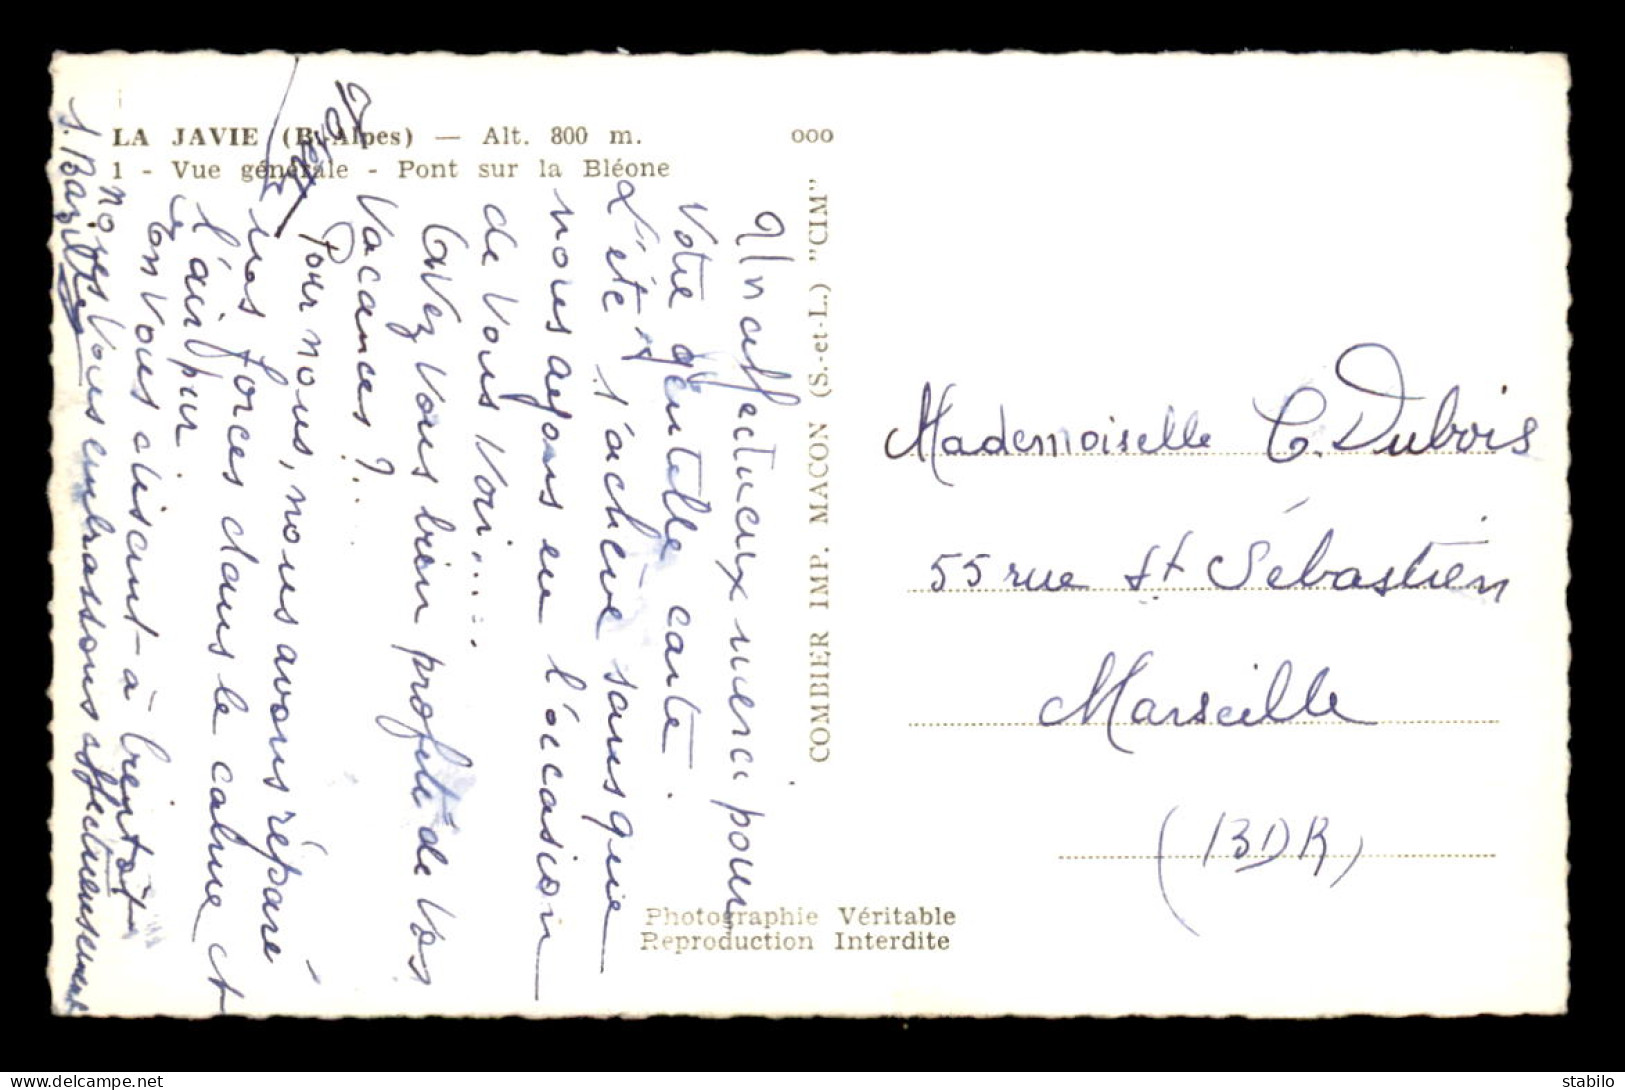 LA JAVIE (B.-Alpes) — Alt. 800 m.
1 - Vue générale - Pont sur la Bléone
ooo
Un affectueux merci pour
Votre gentille carte.
L'été s'achève sans que
nous ayons eu l'occasion
de Vous Voir.....
Avez Vous bien profité de Vos
Vacances ?..
Pour nous, nous avons réparé
nos forces dans le calme et
l'air pur.
En Vous disant à bientôt
nous Vous embrassons affectueusement
COMBIER IMP. MACON (S.-et-L.) "CIM"
Photographie Véritable
Reproduction Interdite
Mademoiselle C. Dubois
55 rue St Sébastien
Marseille
(BDR)
stabilo